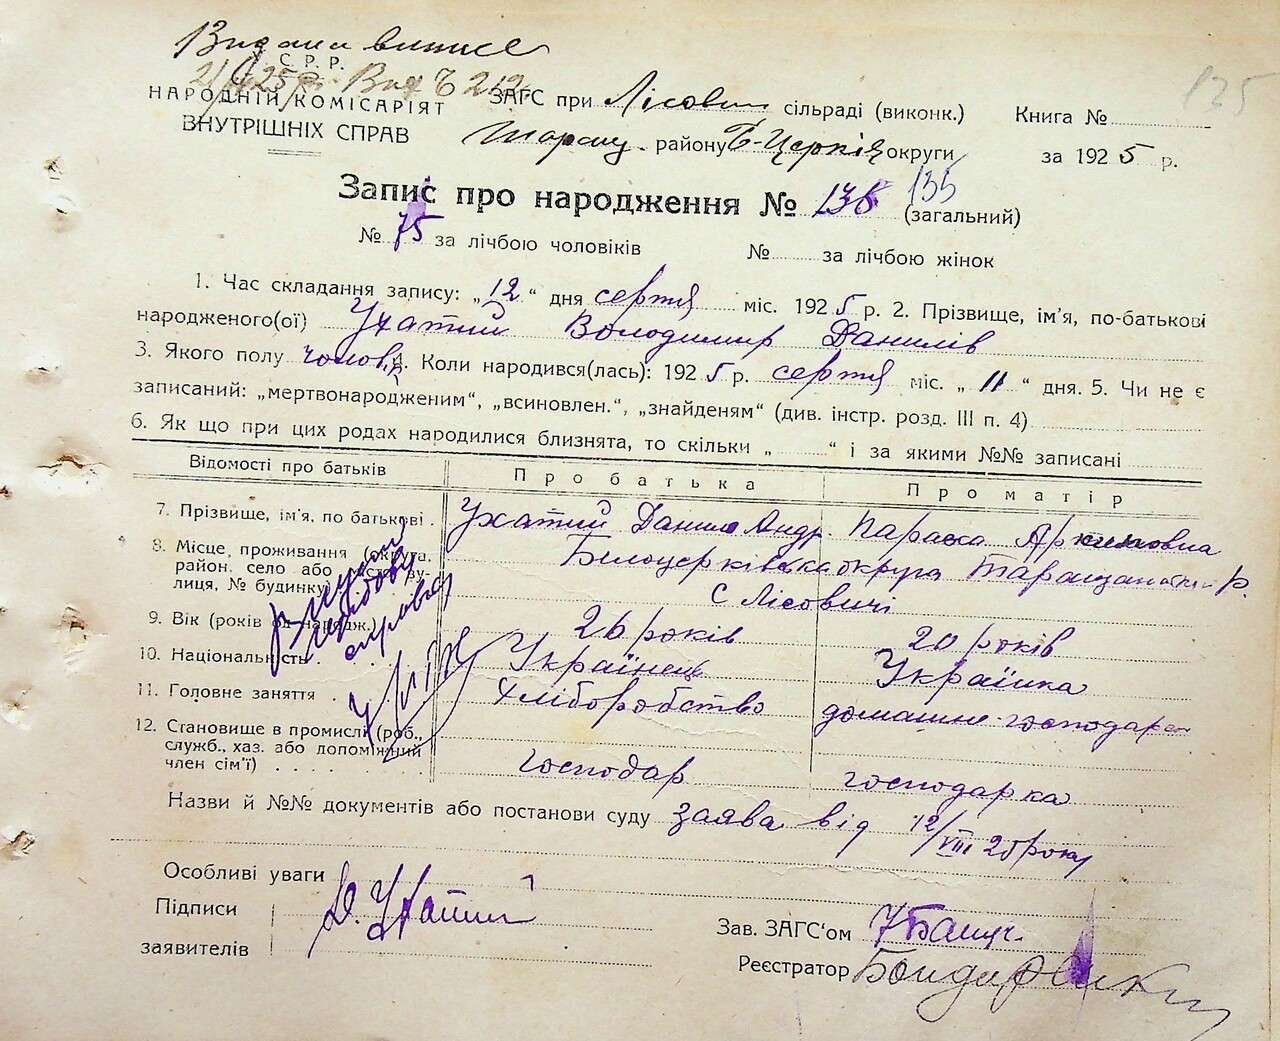 Видана виписс
У.С.Р.Р.
135
НАРОДНІЙ КОМІСАРІЯТ
ВНУТРІШНІХ СПРАВ
ЗАГС при Лісович сільраді (виконк.)
Книга №
Таращ. району Б-Церків округи
за 1925 р.
Запис про народження № 135 135 (загальний)
№ 75 за лічбою чоловіків № за лічбою жінок
1. Час складання запису: „12“ дня серпня міс. 1925 р. 2. Прізвище, ім'я, по-батькові
народженого(ої) Ухатий Володимир Данилів
3. Якого полу чолов. 4. Коли народився(лась): 1925 р. серпня міс. „11“ дня. 5. Чи не є
записаний: „мертвонародженим“, „всиновлен.“, „знайденям“ (див. інстр. розд. III п. 4)
6. Як що при цих родах народилися близнята, то скільки „ “ і за якими №№ записані
Відомості про батьків Про батька Про матір
7. Прізвище, ім'я, по батькові. Ухатий Данило Андр. Параска Архиповна
8. Місце, проживання (округа, район, село або місто, вулиця, № будинку) Білоцерківська округа Таращанськ-р.
С Лісовичі
9. Вік (років од народж.) 26 років 20 років
10. Національність. Українець Українка
11. Головне заняття. Хліборобство домашнє-господарсть
12. Становище в промислі (роб.,
служб., хаз. або допоміжний
член сім'ї) господар господарка
Назви й №№ документів або постанови суду заява від 12/VIII 25 року
Особливі уваги
Підписи
заявителів
Д. Ухатий
Зав. ЗАГС'ом
Реєстратор Бондарчик